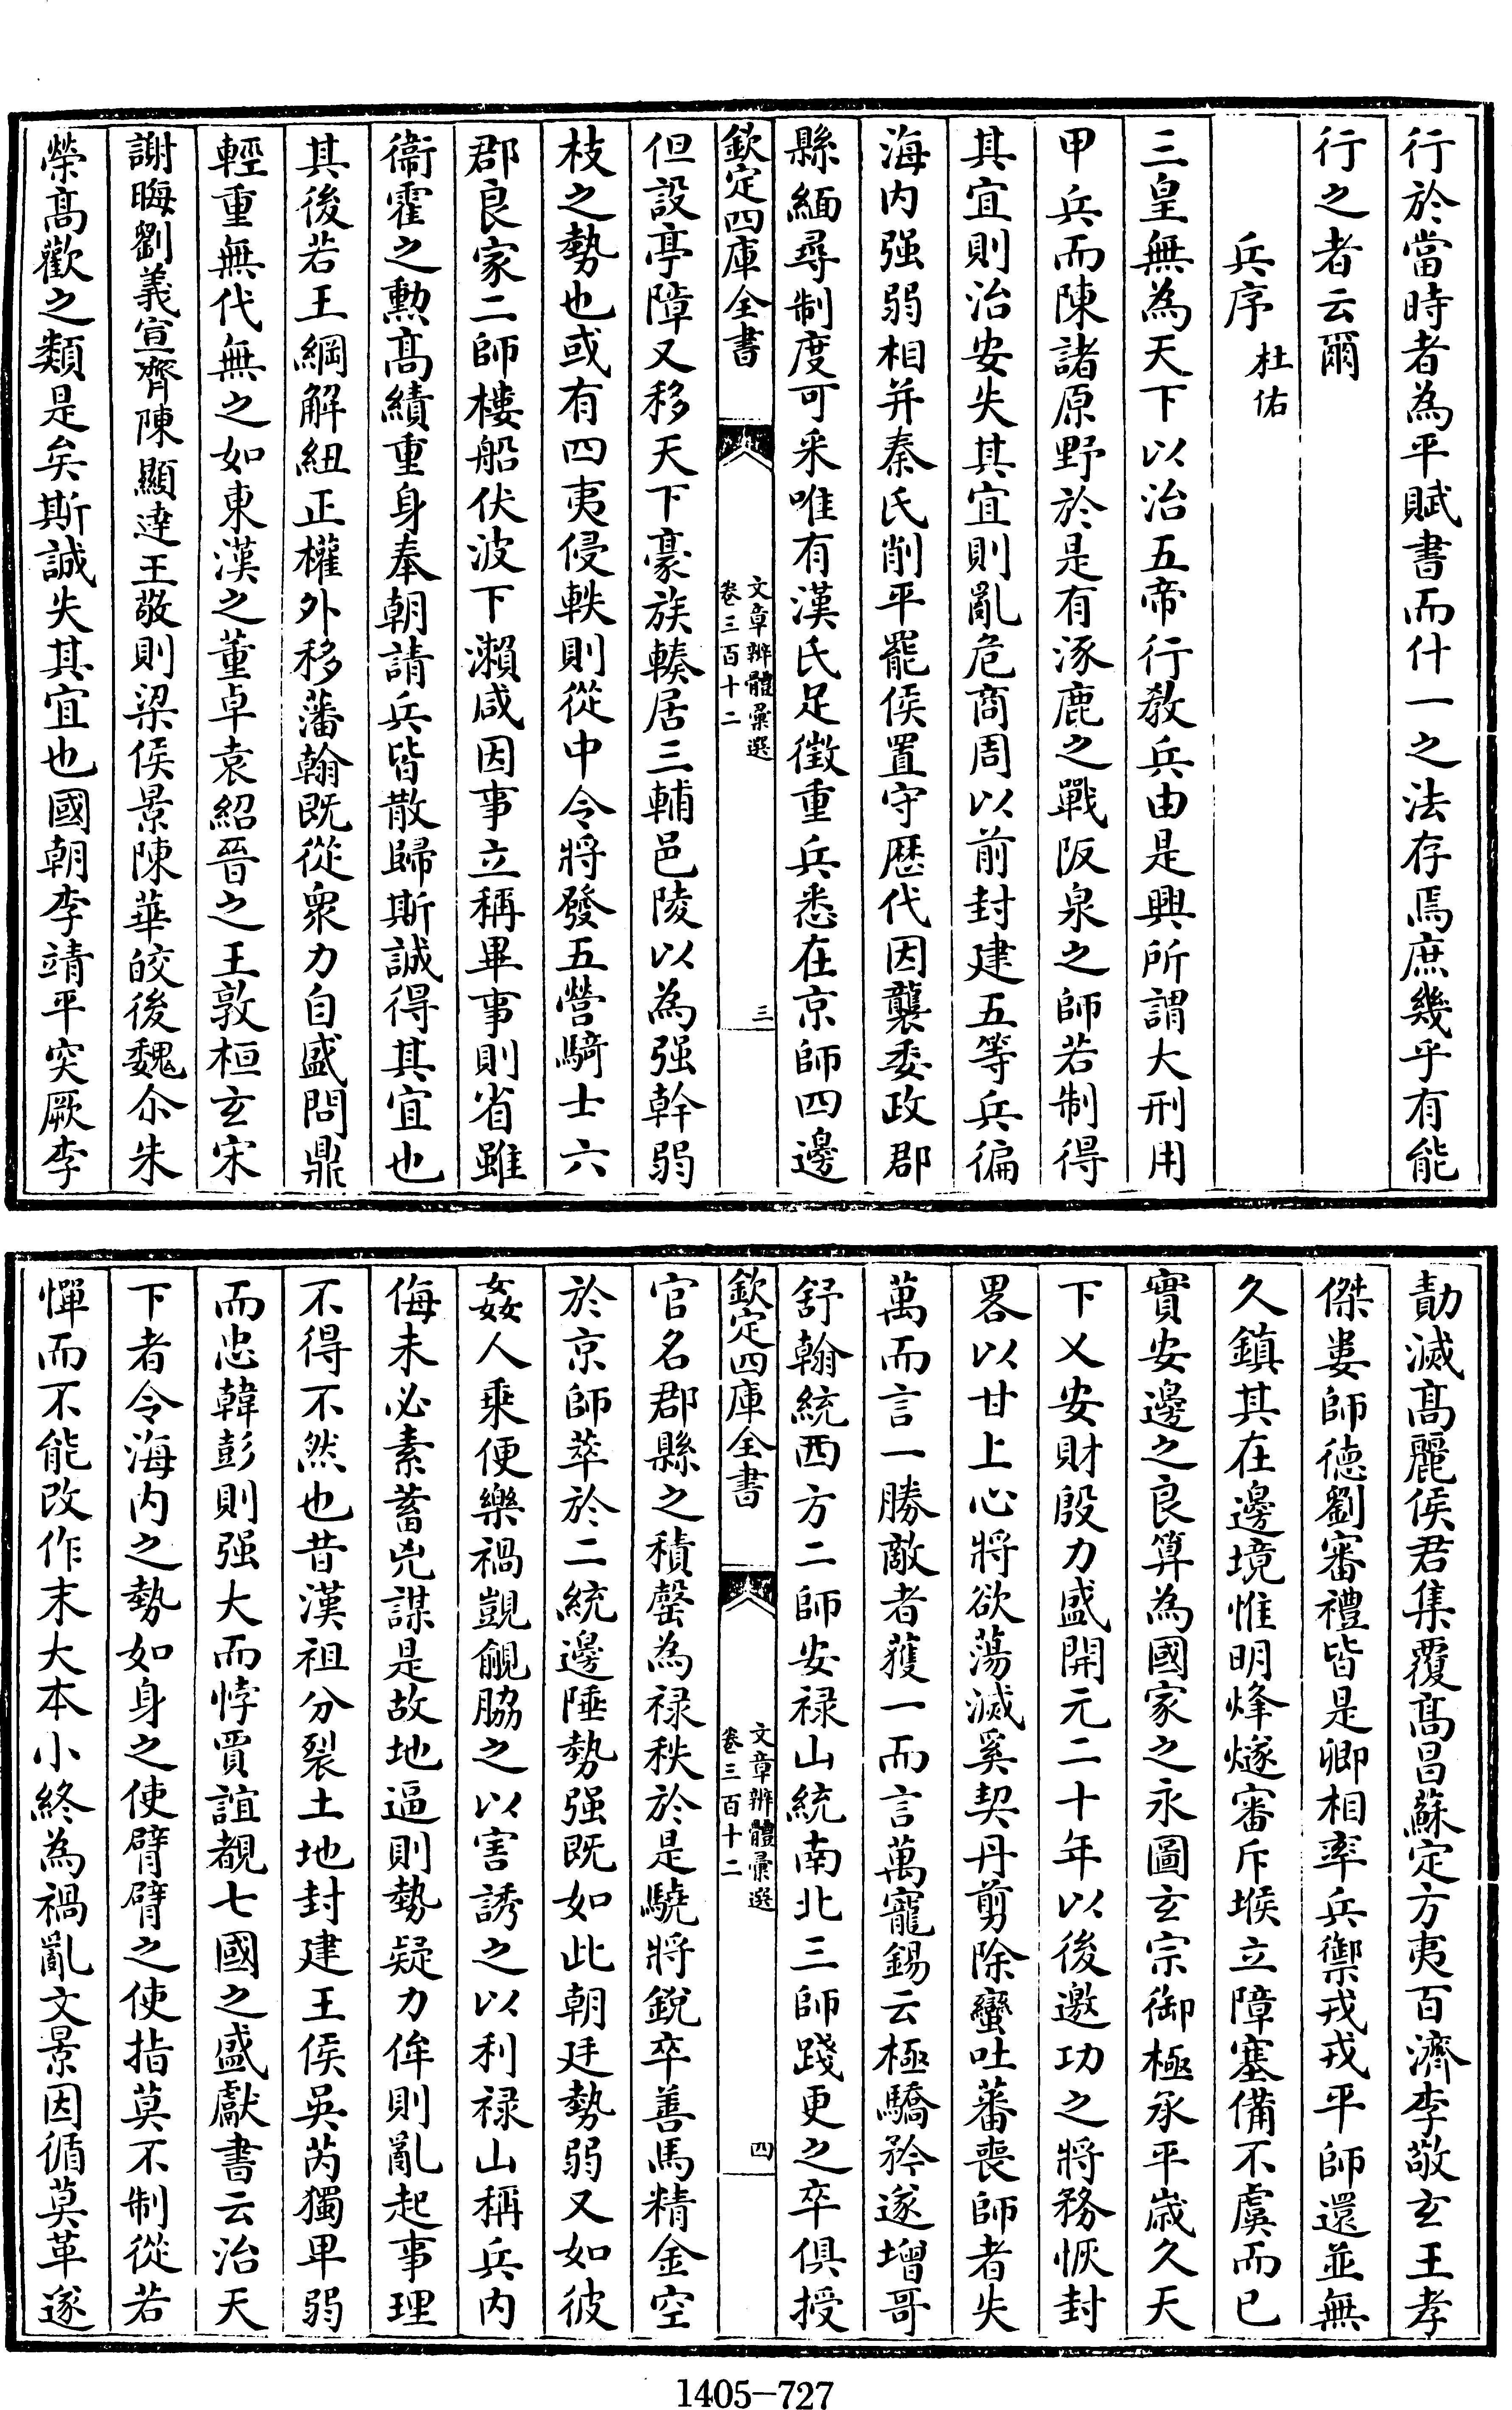 行於當時者為平賦書而什一之法存焉庶幾乎有能
行之者云爾
兵序 杜佑
三皇無為天下以治五帝行教兵由是興所謂大刑用
甲兵而陳諸原野於是有涿鹿之戰阪泉之師若制得
其宜則治安失其宜則亂危商周以前封建五等兵徧
海内强弱相并秦氏削平罷侯置守歴代因襲委政郡
縣緬尋制度可采唯有漢氏足徵重兵悉在京師四邊
欽定四庫全書
文章辨體彙選
卷三百十二
三
但設亭障又移天下豪族輳居三輔邑陵以為强幹弱
枝之勢也或有四夷侵軼則從中令將發五營騎士六
郡良家二師樓船伏波下瀨咸因事立稱畢事則省雖
衞霍之勲髙績重身奉朝請兵皆散歸斯誠得其宜也
其後若王綱解紐正權外移藩翰既從衆力自盛問鼎
輕重無代無之如東漢之董卓袁紹晉之王敦桓玄宋
謝晦劉義宣齊陳顯達王敬則梁侯景陳華皎後魏尒朱
榮髙歡之類是矣斯誠失其宜也國朝李靖平突厥李
勣滅髙麗侯君集覆髙昌蘇定方夷百濟李敬玄王孝
傑婁師德劉審禮皆是卿相率兵禦戎戎平師還並無
久鎮其在邊境惟明烽燧審斥堠立障塞備不虞而已
實安邊之良算為國家之永圖玄宗御極承平歲久天
下乂安財殷力盛開元二十年以後邀功之將務恢封
畧以甘上心將欲蕩滅奚契丹剪除蠻吐蕃喪師者失
萬而言一勝敵者獲一而言萬寵錫云極驕矜遂增哥
舒翰統西方二師安禄山統南北三師踐更之卒俱授
欽定四庫全書
文章辨體彙選
卷三百十二
四
官名郡縣之積罄為禄秩於是驍將銳卒善馬精金空
於京師萃於二統邊陲勢强既如此朝廷勢弱又如彼
姦人乘便樂禍覬覦脇之以害誘之以利禄山稱兵内
侮未必素蓄兇謀是故地逼則勢疑力侔則亂起事理
不得不然也昔漢祖分裂土地封建王侯吳芮獨卑弱
而忠韓彭則强大而悖賈誼覩七國之盛獻書云治天
下者令海内之勢如身之使臂臂之使指莫不制從若
憚而不能改作末大本小終為禍亂文景因循莫革遂
1405-727